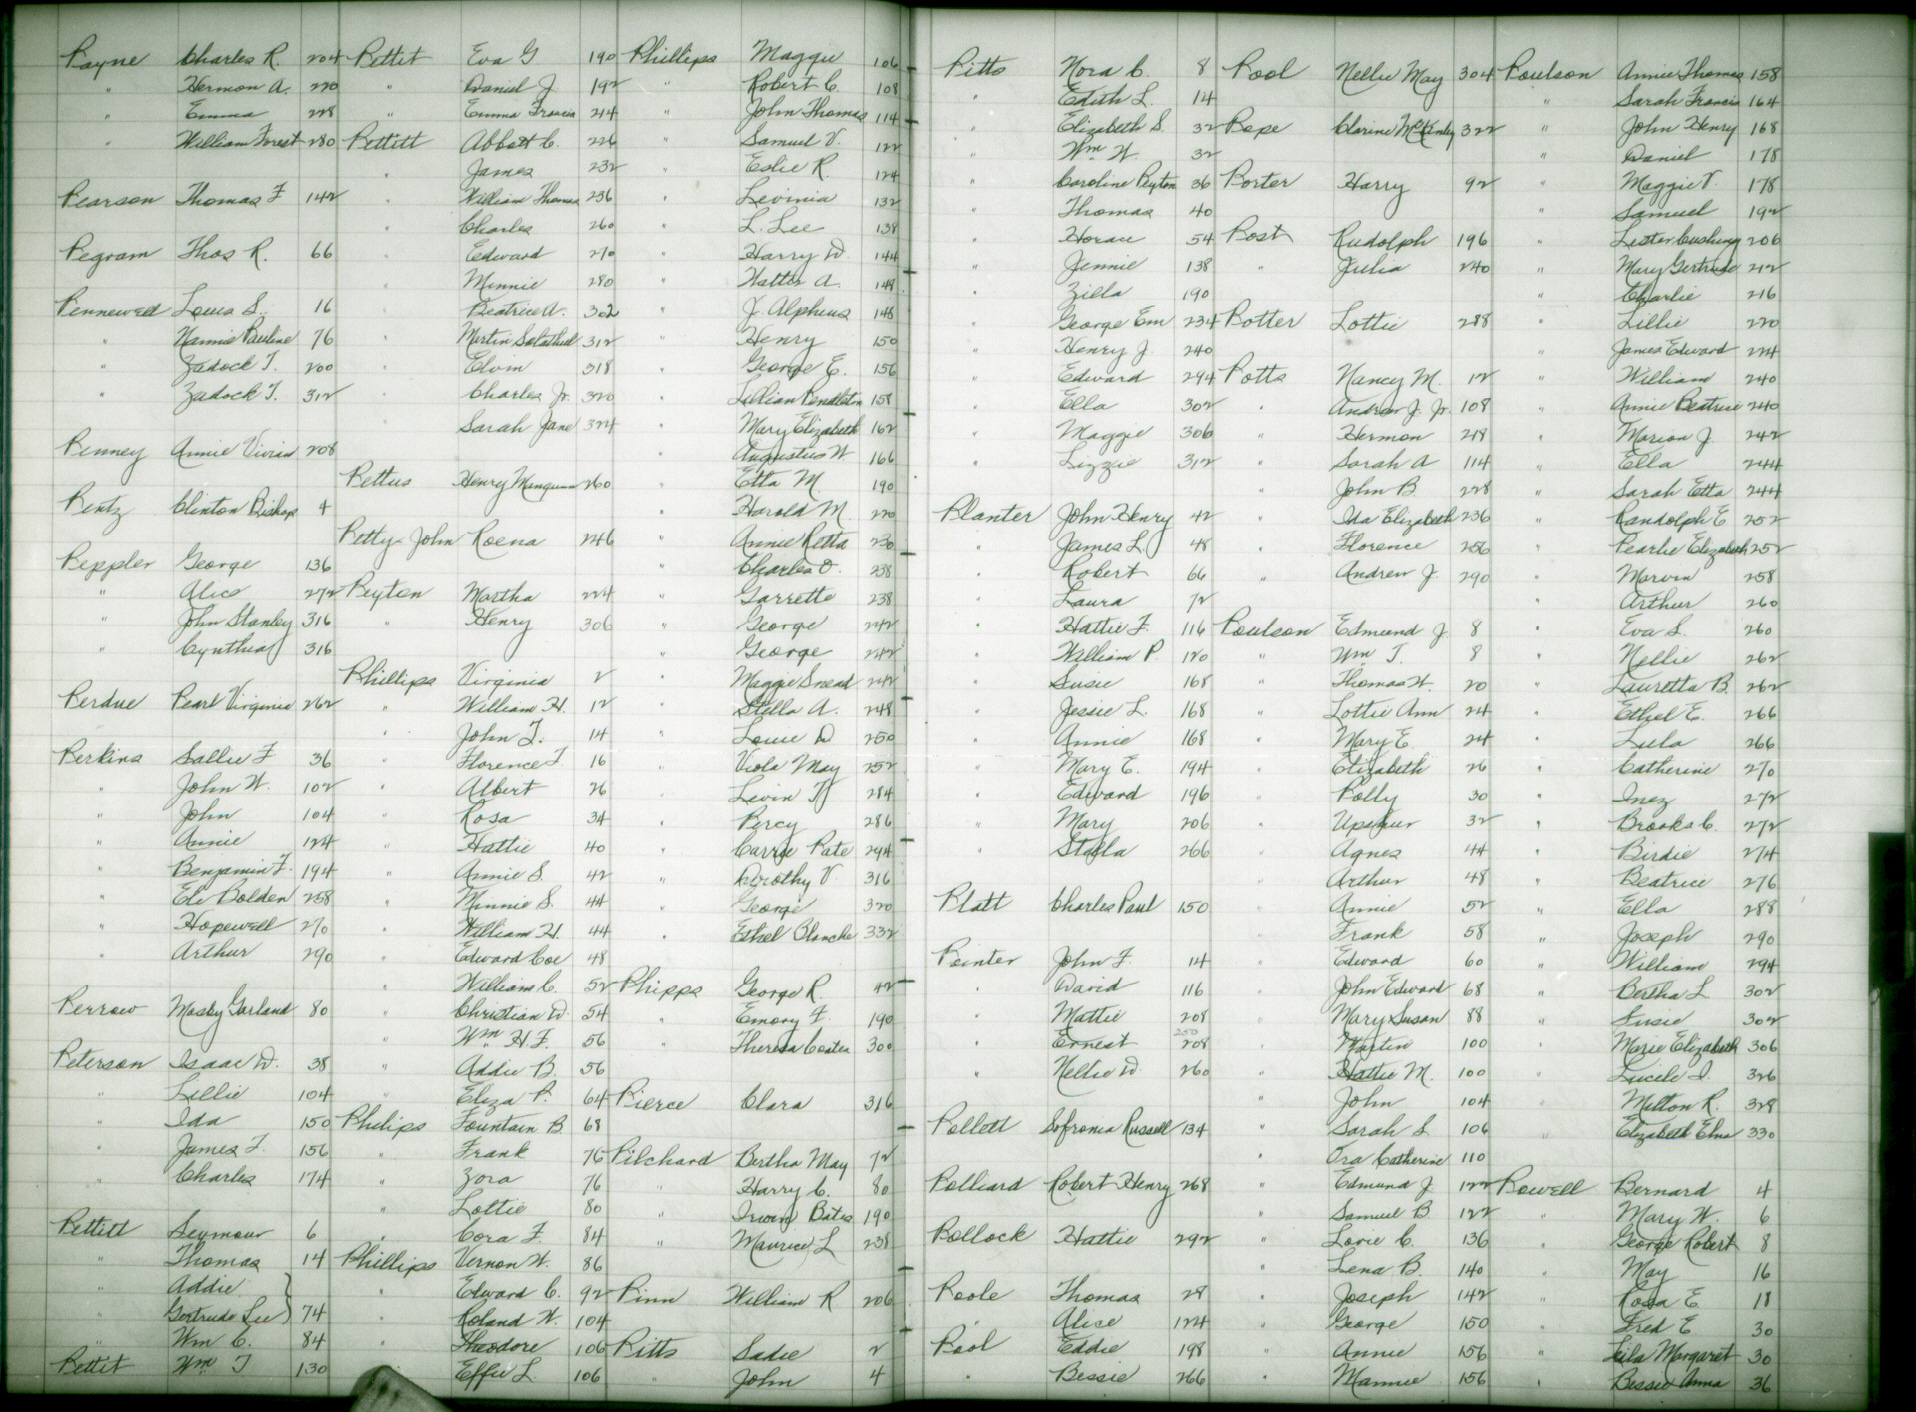 Payne Charles R. 204
" Hermon A. 220
" Emma 228
" William Forest 280
Pearson Thomas F 142
Pegram Thos R. 66
Pennewell Louis S. 16
" Nannie Pauline 76
" Zadock T. 200
" Zadock T. 312
Penney Annie Vivian 208
Pentz Clinton Bishop 4
Peppler George 136
" Alice 272
" John Stanley 316
" Cynthia 316
Perdue Pearl Virginia 262
Perkins Sallie F 36
" John W. 102
" John 104
" Annie 124
" Benjamin F. 194
" Eli Bolden 258
" Hopewell 270
" Arthur 290
Perrow Mosby Garland 80
Peterson Isaac W. 38
" Lillie 104
" Ida 150
" James F. 156
" Charles 174
Pettitt Seymour 6
" Thomas 14
" Addie
" Gertrude Lee } 74
" Wm C. 84
Pettit Wm T 130
Pettit Eva G 190
" Daniel J. 192
" Emma Francis 214
Pettitt Abbott C. 226
" James 232
" William Thomas 236
" Charles 260
" Edward 270
" Minnie 280
" Beatrice A. 302
" Martin Salathiel 312
" Elvin 318
" Charles Jr. 320
" Sarah Jane 324
Pettus Henry 260
Petty-John Roena 246
Peyton Martha 224
" Henry 306
Phillips Virginia 2
" William H. 12
" John T. 14
" Florence T. 16
" Albert 26
" Rosa 34
" Hattie 40
" Annie S. 42
" Minnie S. 44
" William H. 44
" Edward Coe 48
" William C. 52
" Christian W. 54
" Wm H F. 56
" Addie B. 56
" Eliza P. 64
Philips Fountain B. 68
" Frank 76
" Zora 76
" Lottie 80
" Cora F. 84
Phillips Vernon W. 86
" Edward C. 92
" Roland W. 104
" Theodore 106
" Effie L 106
Phillips Maggie 106
" Robert C. 108
" John Thomas 114
" Samuel V. 122
" Eslie R. 124
" Levinia 132
" L. Lee 138
" Harry W 144
" Walter A. 148
" J. Alpheus 148
" Henry 150
" George E. 156
" Lillian Pendleton 158
" Mary Elizabeth 162
" Augustus W 166
" Etta M 190
" Harold M. 220
" Annie Retta 230
" Charles O. 238
" Garrette 238
" George 242
" George 242
" Maggie Snead 242
" Stella A. 248
" Louie D 250
" Viola May 252
" Levin T 284
" Percy 286
" Carrye Pate 294
" Dorothy V. 316
" George 320
" Ethel Blanche 332
Phipps George R. 42
" Emory F. 190
" Theresa Coates 300
Pierce Clara 316
Pilchard Bertha May 72
" Harry C. 80
" Irwin Bates 190
" Maurice L 238
Pinn William R 206
Pitts Sadie 2
" John 4
Pitts Nora C. 8
" Edith L. 14
" Elizabeth S. 32
" Wm W. 32
" Caroline Peyton 36
" Thomas 40
" Horace 54
" Jennie 138
" Zilla 190
" George Em 234
" Henry J. 240
" Edward 294
" Ella 302
" Maggie 306
" Lizzie 312
Planter John Henry 42
" James L. 48
" Robert 66
" Laura 72
" Hattie F. 116
" William P. 120
" Susie 168
" Jessie L. 168
" Annie 168
" Mary E. 194
" Edward 196
" Mary 206
" Stella 266
Platt Charles Paul 150
Pointer John F. 14
" David 116
" Mattie 208
" Ernest 250 208
" Nellie W. 260
Pollett Sofronia Russell 134
Polliard Robert Henry 268
Pollock Hattie 292
Poole Thomas 28
" Alice 124
Pool Eddie 198
" Bessie 266
Pool Nellie May 304
Pope Clarine McKinley 322
Porter Harry 92
Post Rudolph 196
" Julia 240
Potter Lottie 288
Potts Nancy M. 12
" Andrew J. Jr. 108
" Hermon 218
" Sarah A 114
" John B. 228
" Ida Elizabeth 236
" Florence 256
" Andrew J. 290
Poulson Edmund J. 8
" Wm T. 8
" Thomas W. 20
" Lottie Ann 24
" Mary E. 24
" Elizabeth 26
" Polly 30
" Upshur 32
" Agnes 44
" Arthur 48
" Annie 52
" Frank 58
" Edward 60
" John Edward 68
" Mary Susan 88
" Martin 100
" Hattie M. 100
" John 104
" Sarah S. 106
" Ora Catherine 110
" Edmund J 122
" Samuel B. 122
" Lovie C. 136
" Lena B. 140
" Joseph 142
" George 150
" Annie 156
" Mannie 156
Poulson Annie Thomas 158
" Sarah Francis 164
" John Henry 168
" Daniel 178
" Maggie V. 178
" Samuel 192
" Lester Cushing 206
" Mary Gertrude 212
" Charlie 216
" Lillie 220
" James Edward 224
" William 240
" Annie Beatrice 240
" Marion J. 242
" Ella 244
" Sarah Etta 244
" Randolph E 252
" Pearlie Elizabeth 252
" Marvin 258
" Arthur 260
" Eva S. 260
" Nellie 262
" Lauretta B. 262
" Ethel E. 266
" Lula 266
" Catherine 270
" Inez 272
" Brooks C. 272
" Birdie 274
" Beatrice 276
" Ella 288
" Joseph 290
" William 294
" Bertha L 302
" Susie 302
" Marie Elizabeth 306
" Lucile I. 326
" Milton R. 328
" Elizabeth Elna 330
Powell Bernard 4
" Mary W. 6
" George Robert 8
" May 16
" Rosa E 18
" Fred E 30
" Leila Margaret 30
" Bessie Anna 36